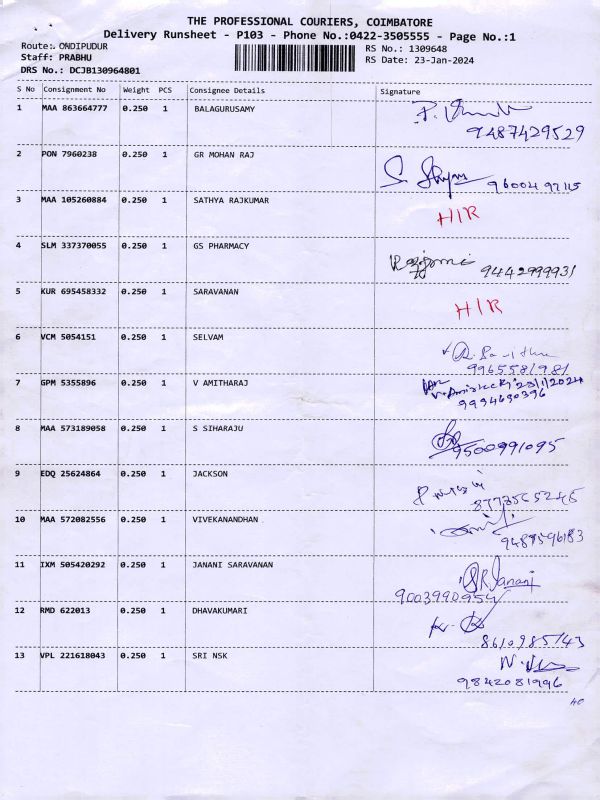 THE PROFESSIONAL COURIERS, COIMBATORE
Delivery Runsheet - P103 - Phone No.:0422-3505555 - Page No.:1
Route:. ONDIPUDUR
RS No.: 1309648
Staff: PRABHU
RS Date: 23-Jan-2024
DRS No.: DCJB130964801
S No Consignment No Weight PCS Consignee Details Signature
1 MAA 863664777 0.250 1 BALAGURUSAMY
9487429529
2 PON 7960238 0.250 1 GR MOHAN RAJ
S. Shyam
3 MAA 105260884 0.250 1 SATHYA RAJKUMAR
H/R
4 SLM 337370055 0.250 1 GS PHARMACY
9442999931
5 KUR 695458332 0.250 1 SARAVANAN
H/R
6 VCM 5054151 0.250 1 SELVAM
9965581981
7 GPM 5355896 0.250 1 V AMITHARAJ
23/1/2024
9994690396
8 MAA 573189058 0.250 1 S SIHARAJU
9500991095
9 EDQ 25624864 0.250 1 JACKSON
10 MAA 572082556 0.250 1 VIVEKANANDHAN
9487596183
11 IXM 505420292 0.250 1 JANANI SARAVANAN
SRJanani
9003990954
12 RMD 622013 0.250 1 DHAVAKUMARI
8610985143
13 VPL 221618043 0.250 1 SRI NSK
9842081996